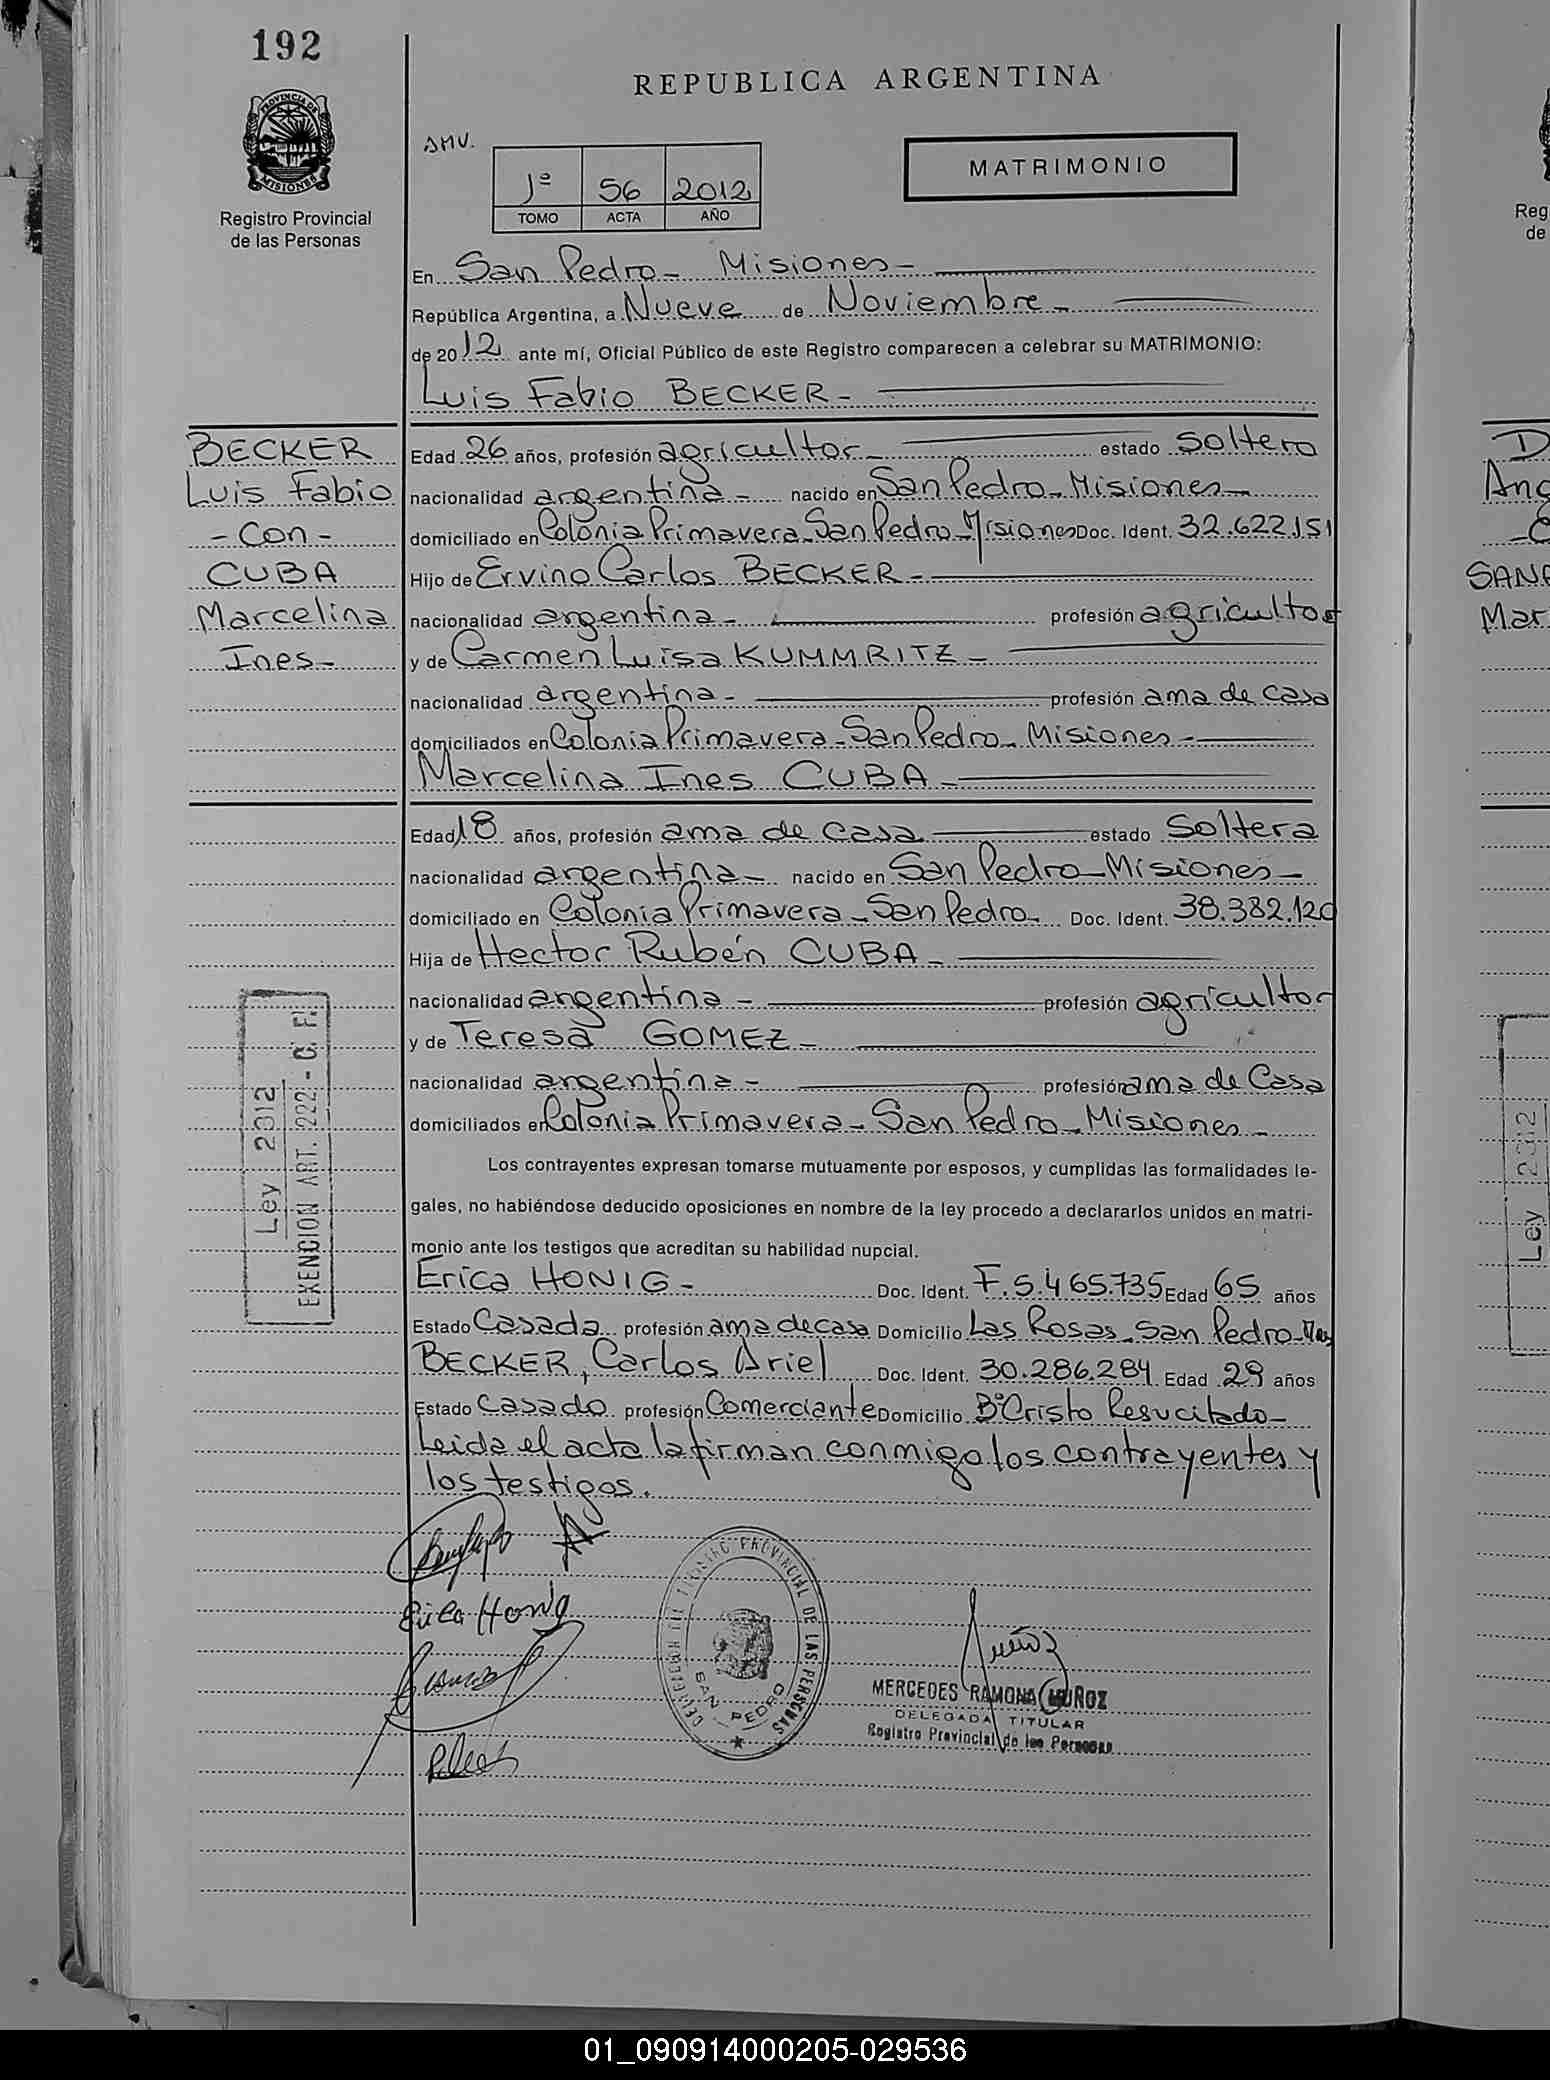 192
REPUBLICA ARGENTINA
PROVINCIA DE MISIONES
Registro Provincial
de las Personas
1º 56 2012
TOMO ACTA AÑO
MATRIMONIO
En San Pedro - Misiones -
República Argentina, a Nueve de Noviembre -
de 2012 ante mí, Oficial Público de este Registro comparecen a celebrar su MATRIMONIO:
Luis Fabio BECKER -
BECKER
Luis Fabio
- Con -
CUBA
Marcelina
Ines -
Edad 26 años, profesión agricultor estado soltero
nacionalidad argentina - nacido en San Pedro - Misiones -
domiciliado en Colonia Primavera - San Pedro - Misiones Doc. Ident. 32.622.151
Hijo de Ervino Carlos BECKER -
nacionalidad argentina - profesión agricultor
y de Carmen Luisa KUMMRITZ -
nacionalidad argentina - profesión ama de casa
domiciliados en Colonia Primavera - San Pedro - Misiones -
Marcelina Ines CUBA -
Edad 18 años, profesión ama de casa estado Soltera
nacionalidad argentina - nacido en San Pedro - Misiones -
domiciliado en Colonia Primavera - San Pedro - Doc. Ident. 38.382.120
Hija de Hector Rubén CUBA -
nacionalidad argentina - profesión agricultor
y de Teresa GOMEZ -
nacionalidad argentina - profesión ama de Casa
domiciliados en Colonia Primavera - San Pedro - Misiones -
Ley 2312
EXENCION ART. 222 - C. F.
Los contrayentes expresan tomarse mutuamente por esposos, y cumplidas las formalidades le-
gales, no habiéndose deducido oposiciones en nombre de la ley procedo a declararlos unidos en matri-
monio ante los testigos que acreditan su habilidad nupcial.
Erica HONIG - Doc. Ident. F. 5.465.735 Edad 65 años
Estado Casada profesión ama de casa Domicilio Las Rosas - San Pedro -
BECKER, Carlos Ariel Doc. Ident. 30.286.284 Edad 29 años
Estado Casado profesión Comerciante Domicilio Bº Cristo Resucitado -
Leida el acta la firman conmigo los contrayentes y
los testigos.
Erica Honig
DELEGACION DEL REGISTRO PROVINCIAL DE LAS PERSONAS
SAN PEDRO
MERCEDES RAMONA MUÑOZ
DELEGADA TITULAR
Registro Provincial de las Personas
Reg
de
D
Ang
Mar
Ley 2312
01_090914000205-029536